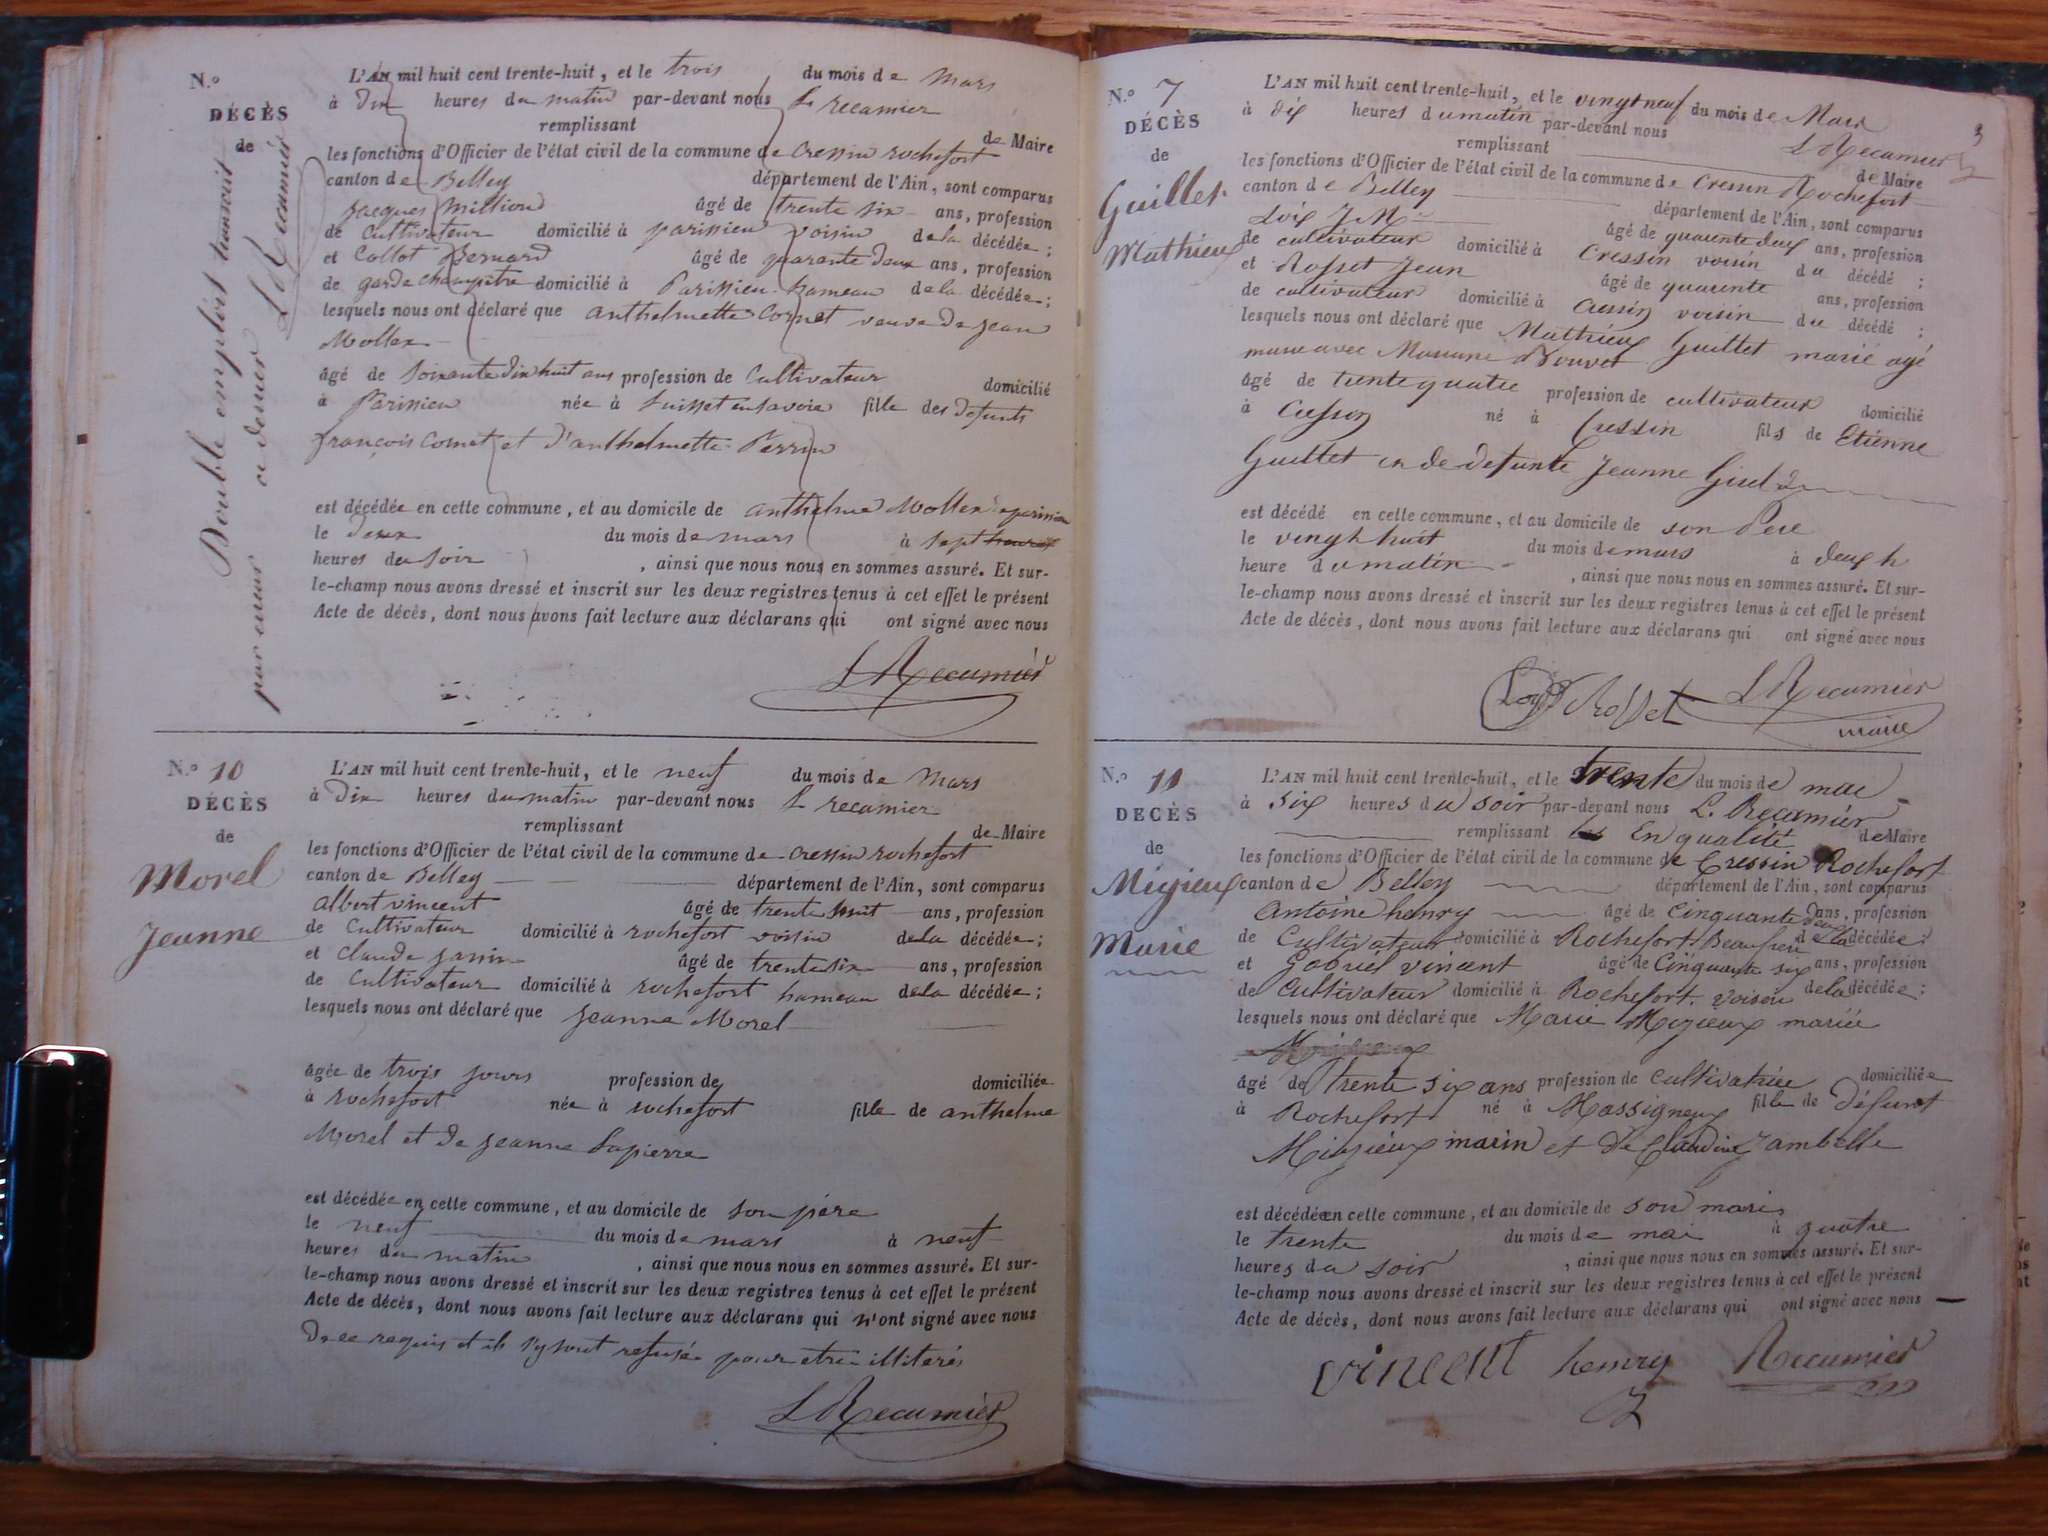 N.º
DÉCÈS
de
Double emploit trouvait
par erreur ce dernier LRecamier
L'AN mil huit cent trente-huit, et le trois du mois de mars
à dix heures du matin par-devant nous L recamier
remplissant de Maire
les fonctions d'Officier de l'état civil de la commune de Cressin rochefort
canton de Belley département de l'Ain, sont comparus
jacques Million âgé de trente six ans, profession
de Cultivateur domicilié à parissieu voisin de la décédée;
et Collot Bernard âgé de quarante deux ans, profession
de garde champètre domicilié à Parissieu hameau de la décédée;
lesquels nous ont déclaré que anthelmette Cornet veuve de jean
Mollex
âgé de soixante dix huit ans profession de Cultivateur domicilié
à Parissieu née à Luisset en savoie fille des defunts
françois Cornet et d'anthelmette Perrin
est décédée en cette commune, et au domicile de anthelme Mollex à parissieu
le deux du mois de mars à sept heures
heures du soir, ainsi que nous nous en sommes assuré. Et sur-
le-champ nous avons dressé et inscrit sur les deux registres tenus à cet effet le présent
Acte de décès, dont nous avons fait lecture aux déclarans qui ont signé avec nous
LRecamier
N.º 10
DÉCÈS
de
Morel
Jeanne
L'AN mil huit cent trente-huit, et le neuf du mois de mars
à dix heures du matin par-devant nous L recamier
remplissant de Maire
les fonctions d'Officier de l'état civil de la commune de Cressin rochefort
canton de Belley département de l'Ain, sont comparus
albert vincent âgé de trente huit ans, profession
de Cultivateur domicilié à rochefort voisin de la décédée;
et Claude janin âgé de trente six ans, profession
de Cultivateur domicilié à rochefort hameau de la décédée;
lesquels nous ont déclaré que jeanne Morel
âgée de trois jours profession de domiciliée
à rochefort née à rochefort fille de anthelme
Morel et de jeanne Lapierre
est décédée en cette commune, et au domicile de son père
le neuf du mois de mars à neuf
heures du matin, ainsi que nous nous en sommes assuré. Et sur-
le-champ nous avons dressé et inscrit sur les deux registres tenus à cet effet le présent
Acte de décès, dont nous avons fait lecture aux déclarans qui n'ont signé avec nous
de ce requis et ils s'y sont refusée pour etre illiterés
LRecamier
3
N.º 7
DÉCÈS
de
Guillet
Mathieux
L'AN mil huit cent trente-huit, et le vingt neuf du mois de Mars
à dix heures du matin par-devant nous L Recamier
remplissant de Maire
les fonctions d'Officier de l'état civil de la commune de Cressin Rochefort
canton de Belley département de l'Ain, sont comparus
Loix J M âgé de quarente deux ans, profession
de cultivateur domicilié à Cressin voisin du décédé;
et Rosset Jean âgé de quarente ans, profession
de cultivateur domicilié à Cressin voisin du décédé;
lesquels nous ont déclaré que Mathieux Guillet marié agé
marié avec Marianne Bouvet
âgé de trente quatre profession de cultivateur domicilié
à Cressin né à Cressin fils de Etienne
Guillet et de defunte Jeanne
est décédé en cette commune, et au domicile de son Pere
le vingt huit du mois de mars à deux h
heure du matin, ainsi que nous nous en sommes assuré. Et sur-
le-champ nous avons dressé et inscrit sur les deux registres tenus à cet effet le présent
Acte de décès, dont nous avons fait lecture aux déclarans qui ont signé avec nous
Rosset LRecamier
maire
N.º 11
DÉCÈS
de
Migieux
Marie
L'AN mil huit cent trente-huit, et le trente du mois de mai
à six heures du soir par-devant nous L. Recamier
remplissant En qualité de Maire
les fonctions d'Officier de l'état civil de la commune de Cressin Rochefort
canton de Belley département de l'Ain, sont comparus
Antoine henry âgé de Cinquante deux ans, profession
de Cultivateur domicilié à Rochefort Beaufrere de la décédée;
et Gabriel vincent âgé de Cinquante six ans, profession
de Cultivateur domicilié à Rochefort voisin de la décédée;
lesquels nous ont déclaré que Marie Migieux mariée
âgé de trente six ans profession de Cultivatrice domiciliée
à Rochefort né à Massigneux fille de défunt
Migieux marin et de Claudine Jambelle
est décédée en cette commune, et au domicile de son mari
le trente du mois de mai à quatre
heures du soir, ainsi que nous nous en sommes assuré. Et sur-
le-champ nous avons dressé et inscrit sur les deux registres tenus à cet effet le présent
Acte de décès, dont nous avons fait lecture aux déclarans qui ont signé avec nous
vincent henry Recamier